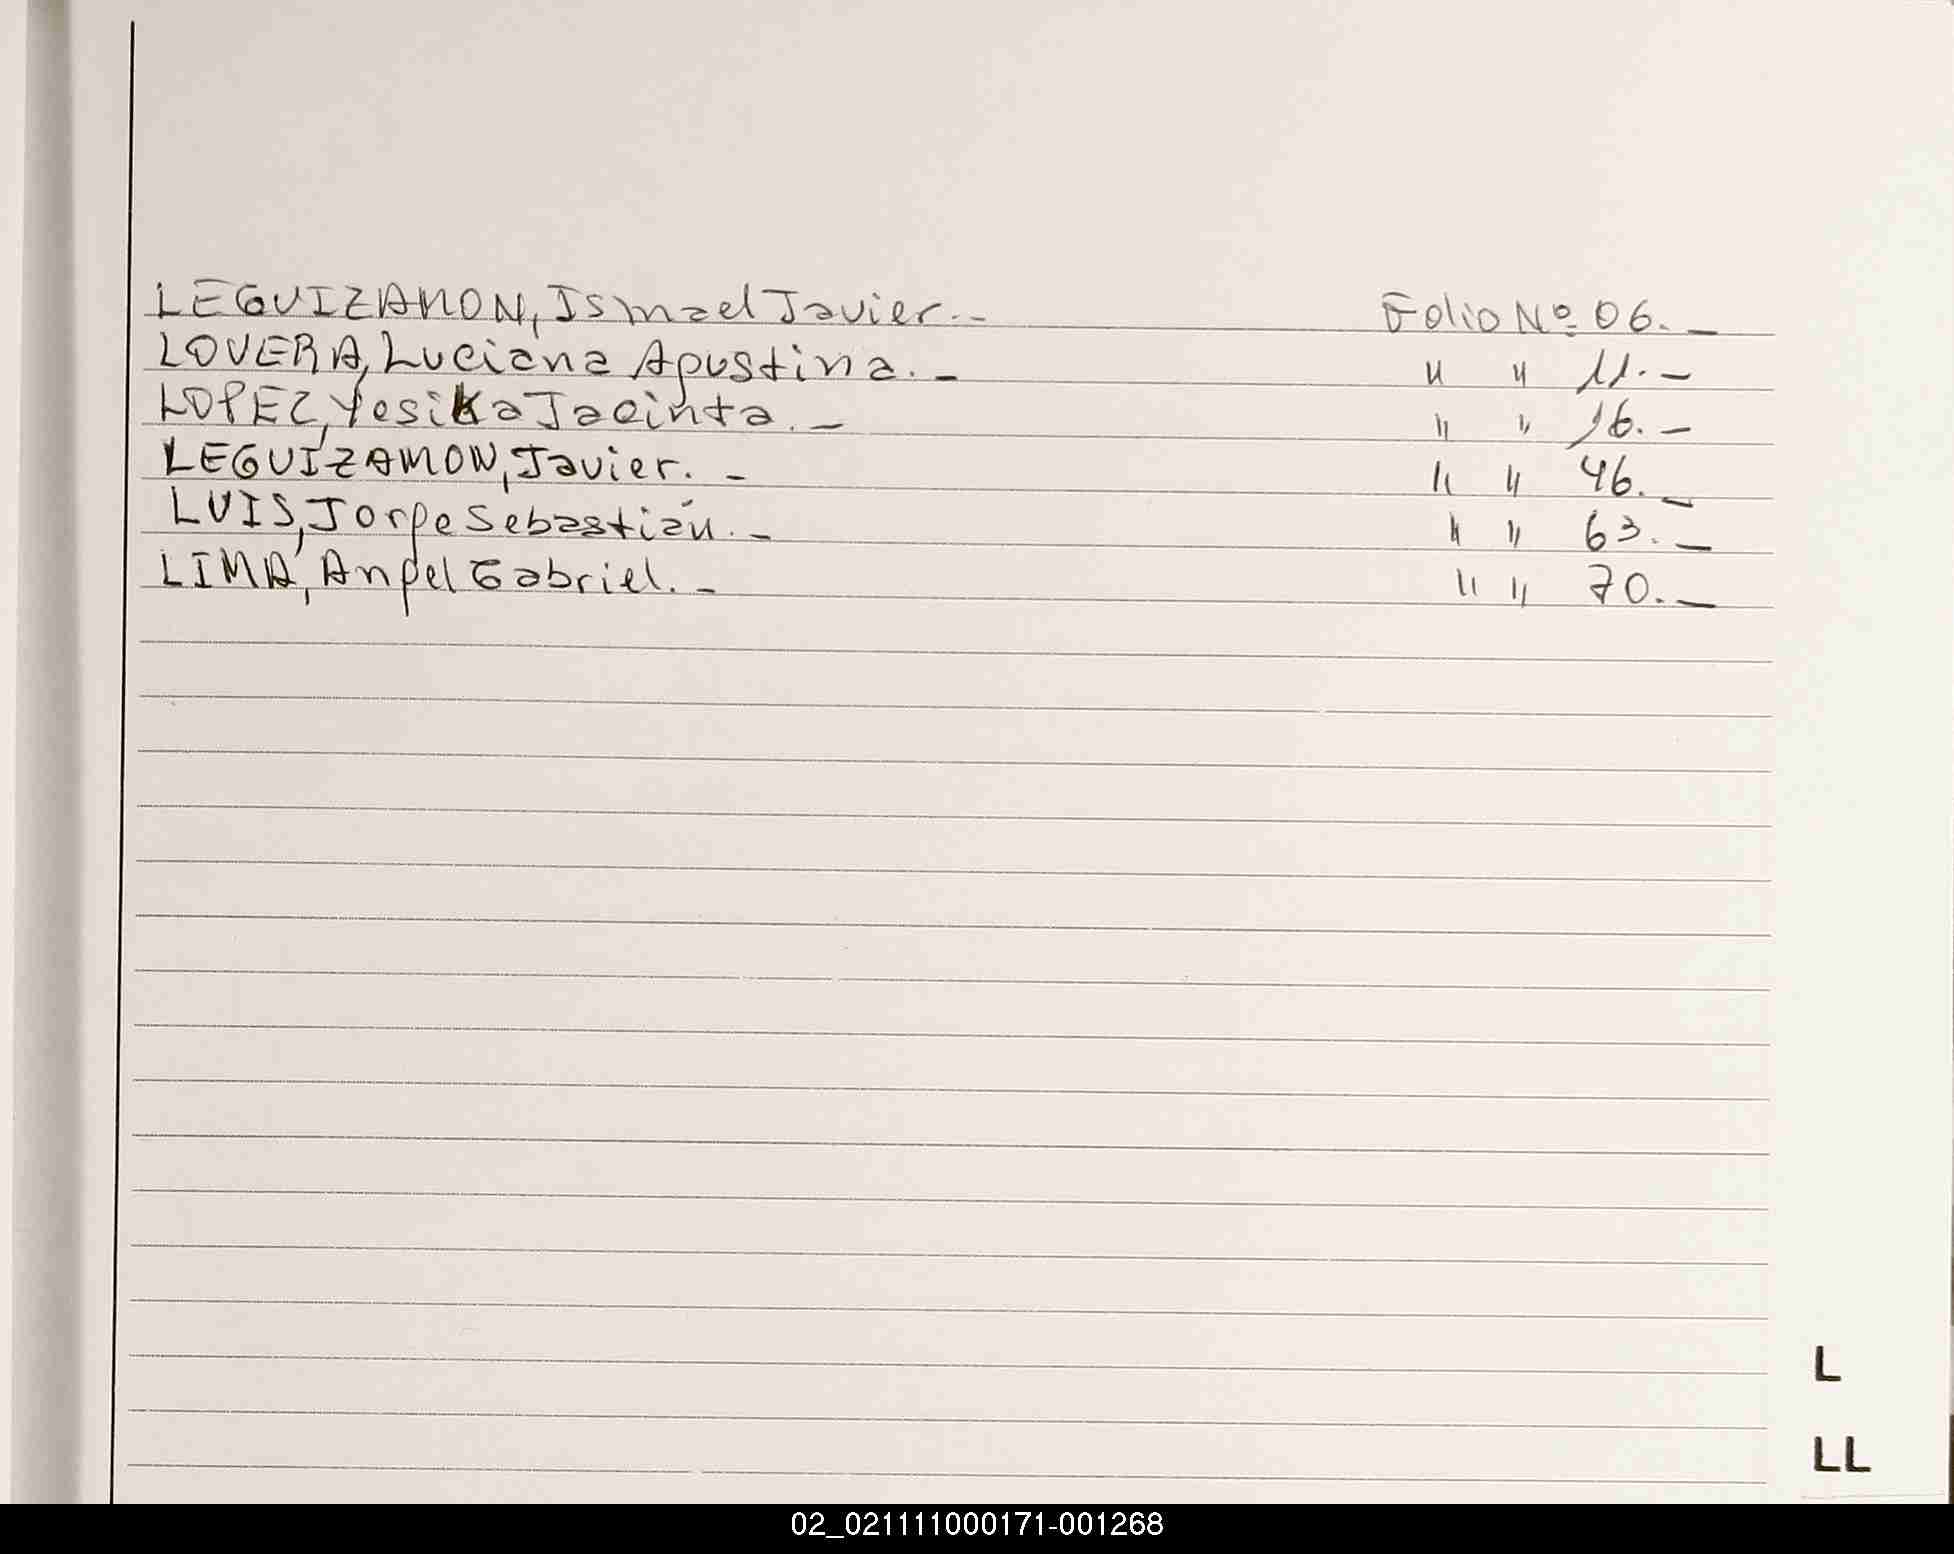 LEGUIZAMON, Ismael Javier.- Folio Nº 06.-
LOVERA, Luciana Agustina.- " " 11.-
LOPEZ, Yesika Jacinta.- " " 16.-
LEGUIZAMON, Javier.- " " 46.-
LUIS, Jorge Sebastián.- " " 63.-
LIMA, Angel Gabriel.- " " 70.-
L
LL
02_021111000171-001268